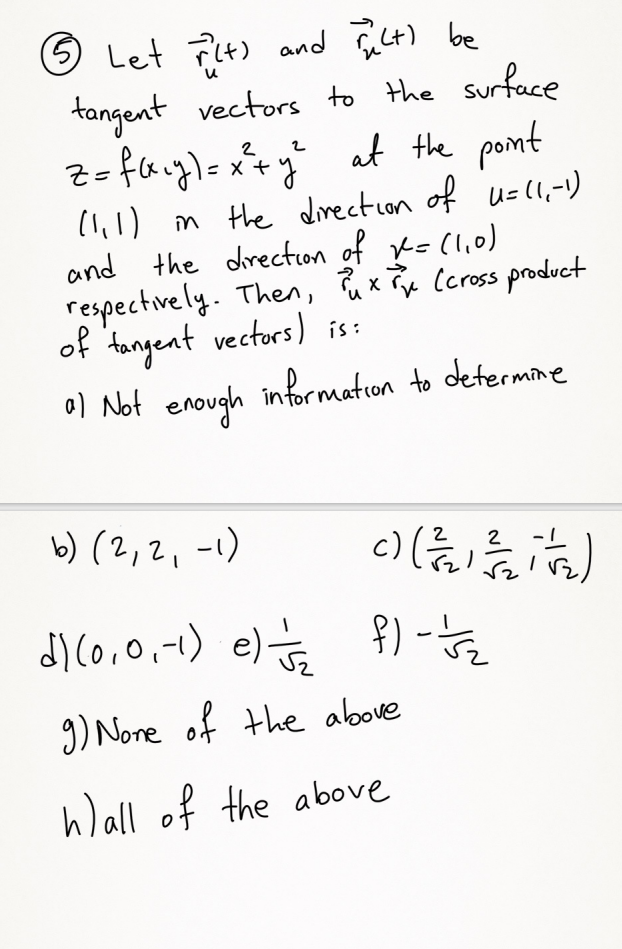 ⑤ Let r⃗_u(t) and r⃗_v(t) be
tangent vectors to the surface
z = f(x,y) = x² + y² at the point
(1,1) in the direction of u = (1,-1)
and the direction of v = (1,0)
respectively. Then, r⃗_u × r⃗_v (cross product
of tangent vectors) is:
a) Not enough information to determine
b) (2, 2, -1) c) (2/√2, 2/√2, -1/√2)
d) (0, 0, -1) e) 1/√2 f) -1/√2
g) None of the above
h) all of the above